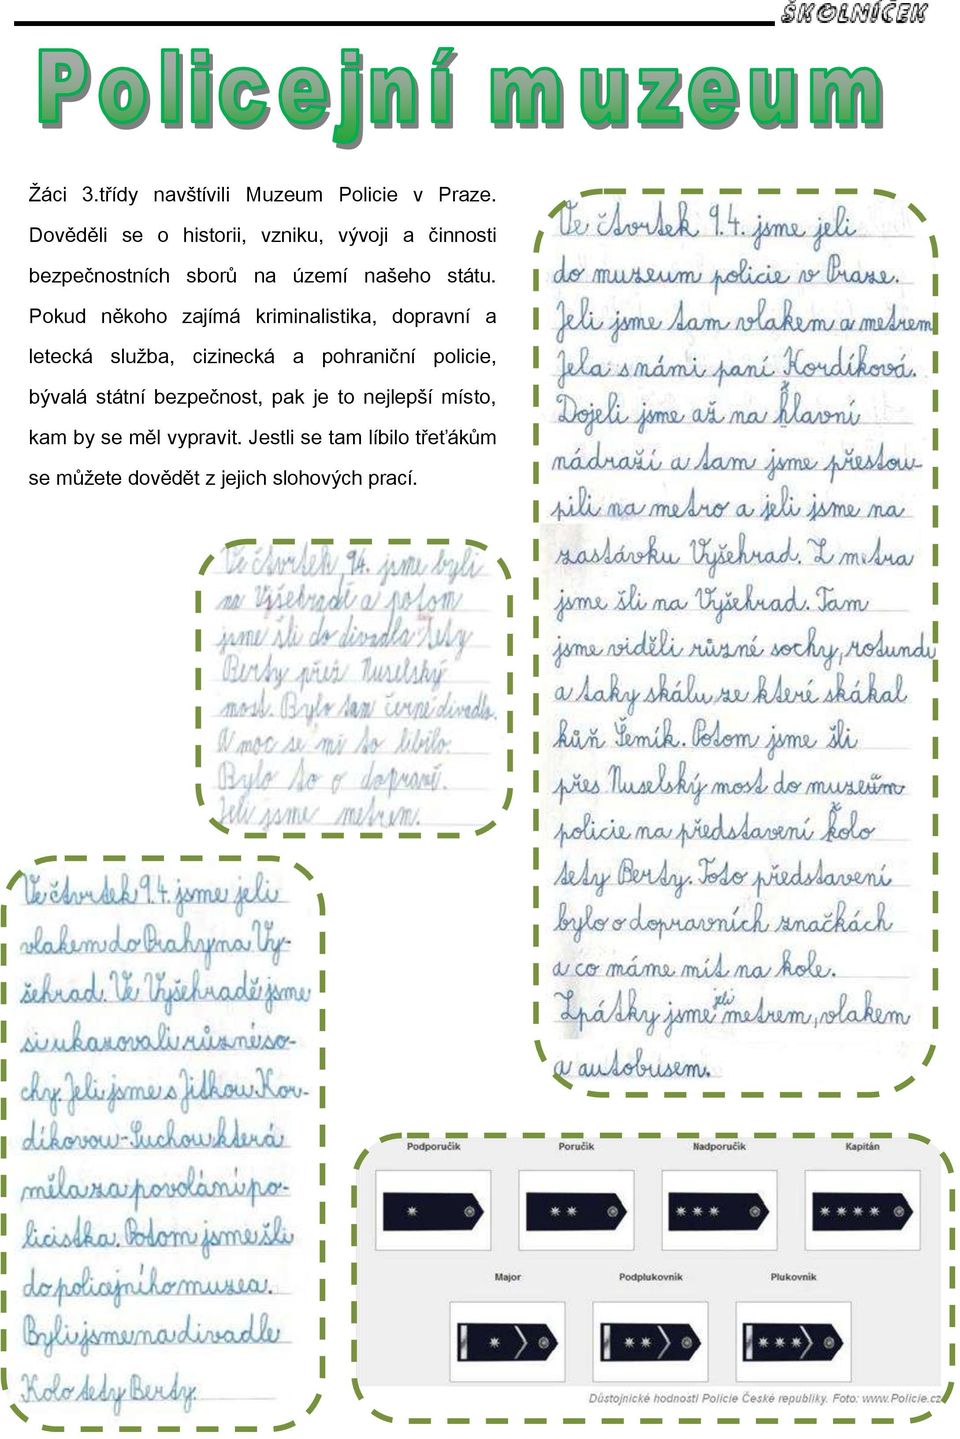 ŠKOLNÍČEK
Policejní muzeum
Žáci 3.třídy navštívili Muzeum Policie v Praze.
Dověděli se o historii, vzniku, vývoji a činnosti
bezpečnostních sborů na území našeho státu.
Pokud někoho zajímá kriminalistika, dopravní a
letecká služba, cizinecká a pohraniční policie,
bývalá státní bezpečnost, pak je to nejlepší místo,
kam by se měl vypravit. Jestli se tam líbilo třeťákům
se můžete dovědět z jejich slohových prací.
Ve čtvrtek 9.4. jsme jeli
do muzeum policie v Praze.
Jeli jsme tam vlakem a metrem
Jela s námi paní Kordíková.
Dojeli jsme až na hlavní
nádraží a tam jsme přestou-
pili na metro a jeli jsme na
zastávku Vyšehrad. Z metra
jsme šli na Vyšehrad. Tam
jsme viděli různé sochy, rotundu
a taky skálu ze které skákal
kůň Šemík. Potom jsme šli
přes Nuselský most do muzeum
policie na představení kolo
tety Berty. Toto představení
bylo o dopravních značkách
a co máme mít na kole.
Zpátky jsme jeli metrem, vlakem
a autobusem.
Ve čtvrtek 9.4. jsme byli
na Vyšehradě a potom
jsme šli do divadla Tety
Berty přež Nuselský
most. Bylo tam černé divadlo.
A moc se mi to libilo.
Bylo to o dopravě.
Jeli jsme metrem.
Ve čtvrtek 9.4. jsme jeli
vlakem do Prahy na Vy-
šehrad. Ve Vyšehradě jsme
si ukazovali různé so-
chy. Jeli jsme s Jitkou Kor-
díkovou-Suchou, která
měla za povolání po-
licistka. Potom jsme šli
do policejního muzea.
Byli jsme na divadle
Kolo tety Berty.
Podporučík Poručík Nadporučík Kapitán
Major Podplukovník Plukovník
Důstojnické hodnosti Policie České republiky. Foto: www.Policie.cz